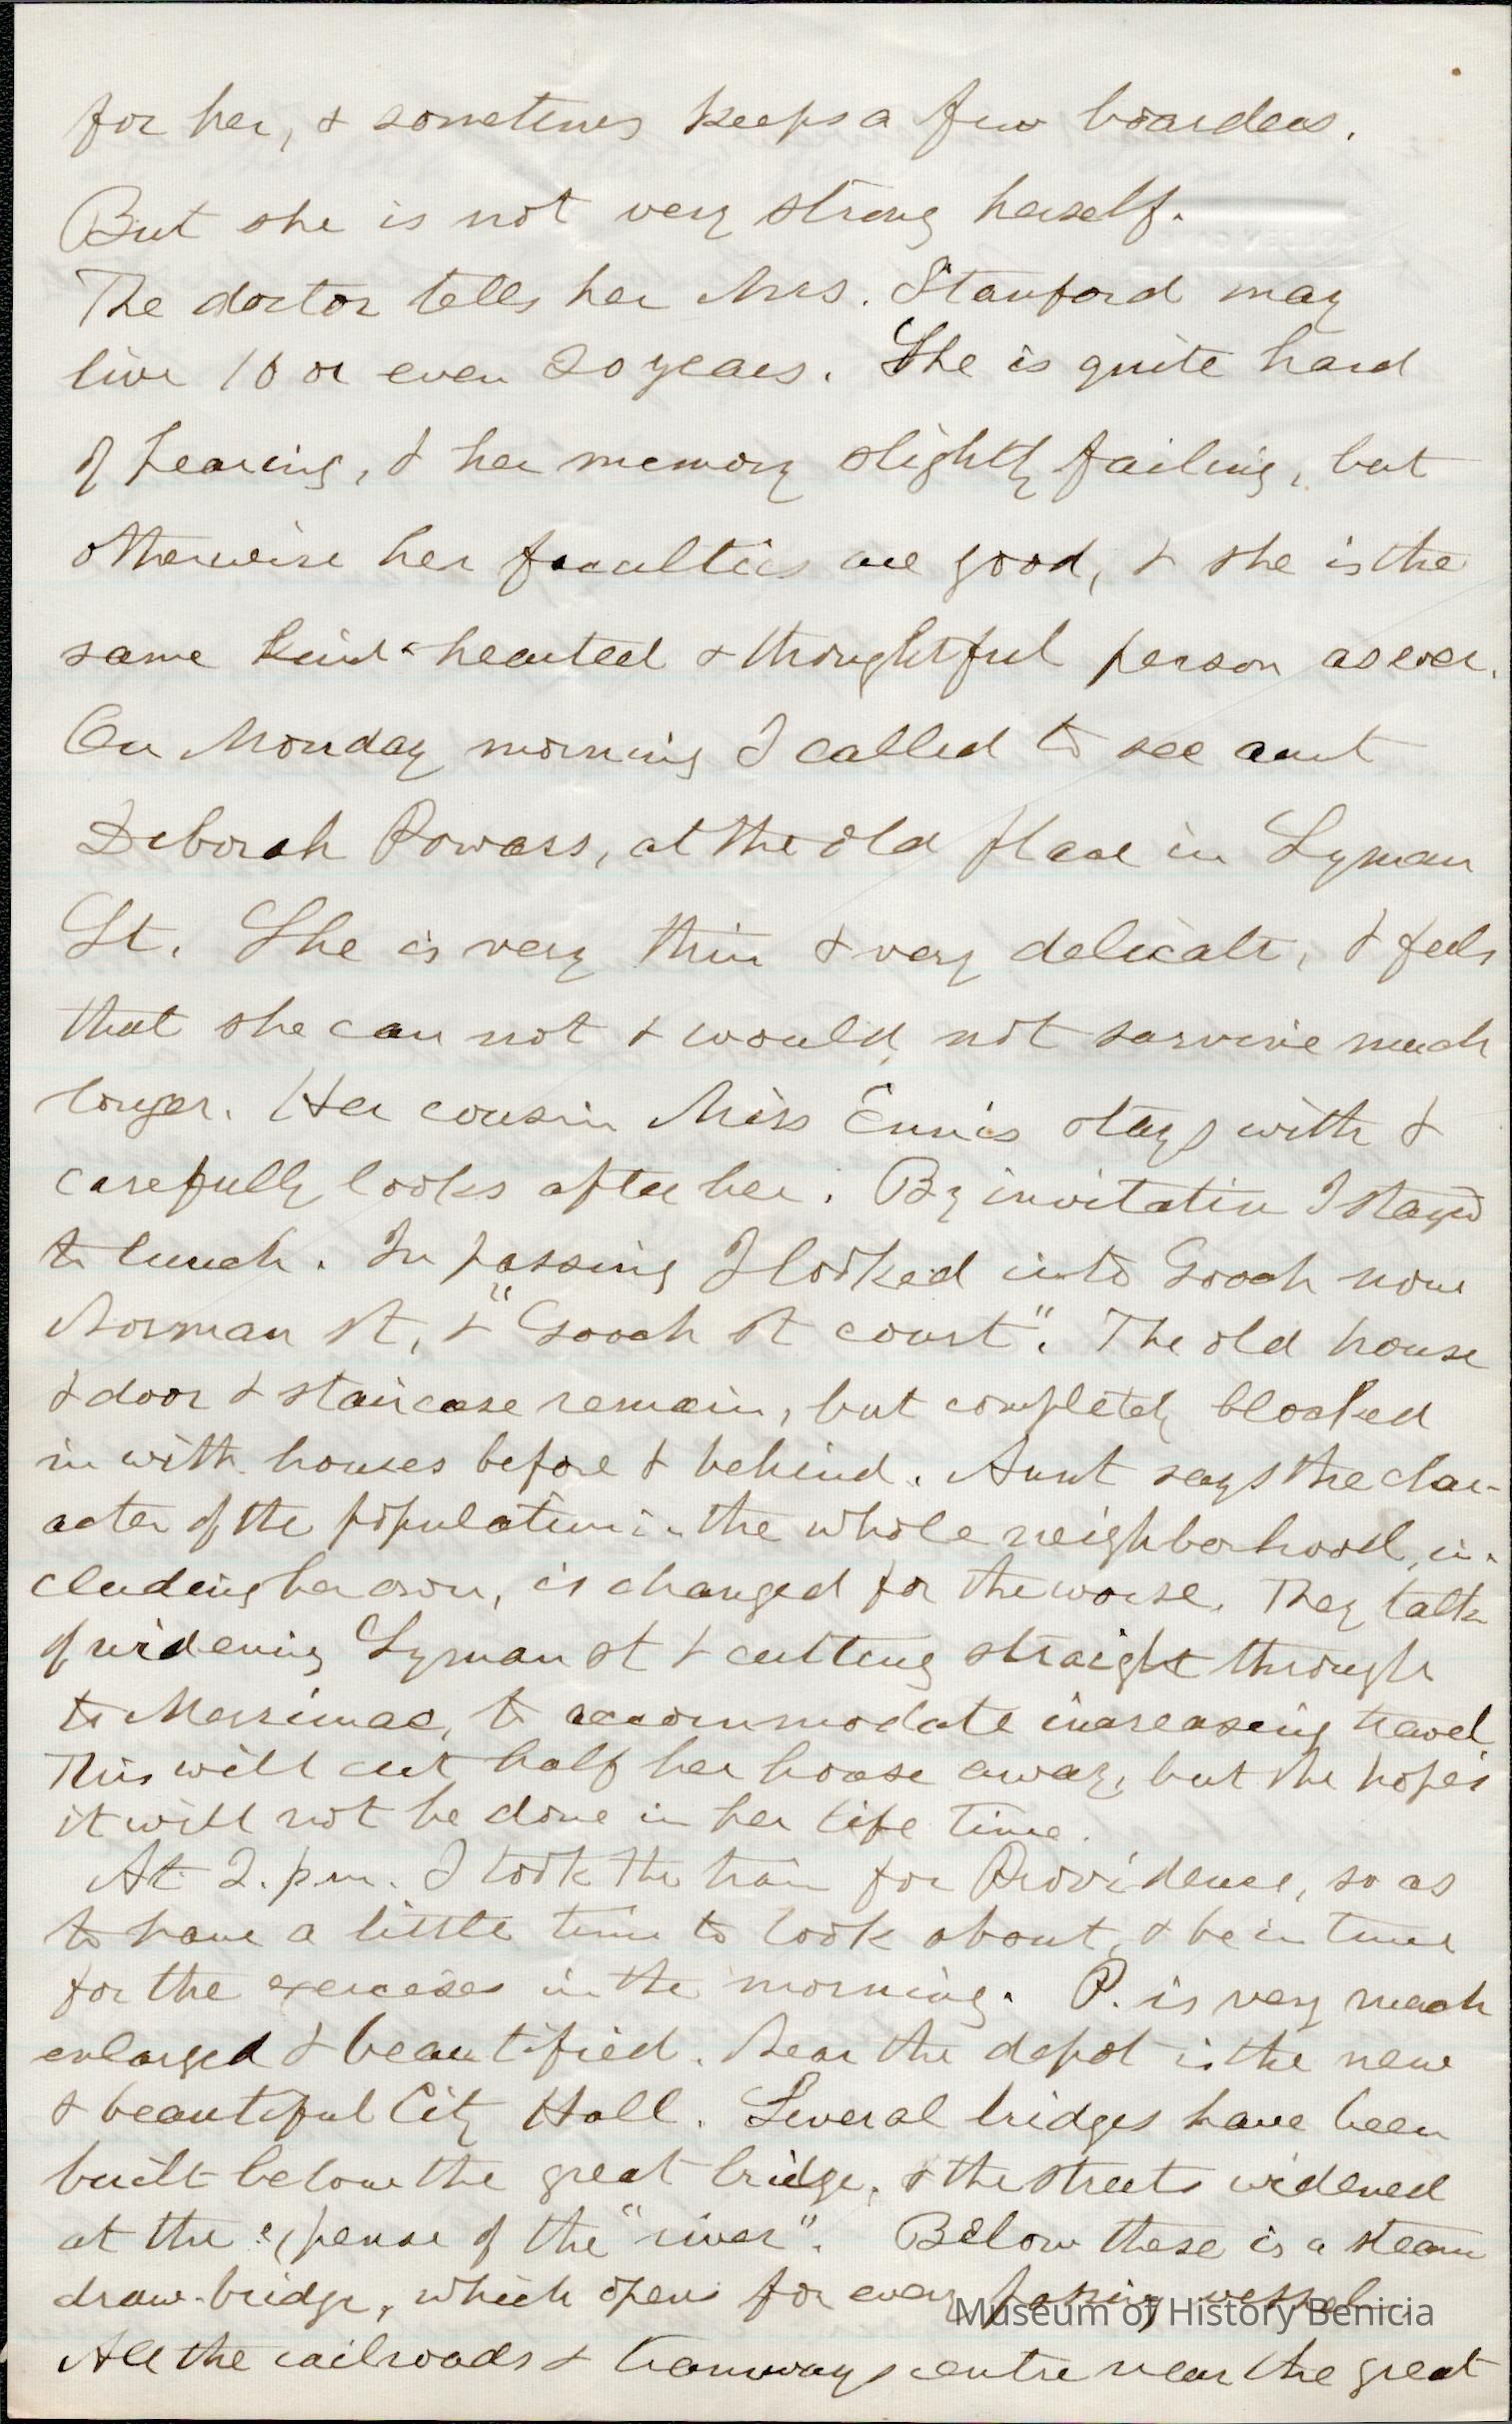 for her, & sometimes keeps a few boarders.
But she is not very strong herself.
The doctor tells her Mrs. Stanford may
live 10 or even 20 years. She is quite hard
of hearing, & her memory slightly failing, but
otherwise her faculties are good, & she is the
same kind-hearted & thoughtful person as ever.
On Monday morning I called to see aunt
Deborah Powars, at the old place in Lyman
St. She is very thin & very delicate, & feels
that she can not & would not survive much
longer. Her cousin Miss Ennis stays with &
carefully looks after her. By invitation I stayed
to lunch. In passing I looked into Gooch now
Norman St, & "Gooch St court". The old house
& door & staircase remain, but completely blocked
in with houses before & behind. Aunt says the char-
acter of the population in the whole neighborhood, in-
cluding her own, is changed for the worse. They talk
of widening Lyman st & cutting straight through
to Merrimac, to accommodate increasing travel.
This will cut half her house away, but she hopes
it will not be done in her life time.
At 2. p.m. I took the train for Providence, so as
to have a little time to look about, & be in time
for the exercises in the morning. P. is very much
enlarged & beautified. Near the depot is the new
& beautiful City Hall. Several bridges have been
built below the great bridge, & the streets widened
at the expense of the "river". Below these is a steam
draw-bridge, which opens for every passing vessel.
All the railroads & tramways centre near the great
Museum of History Benicia